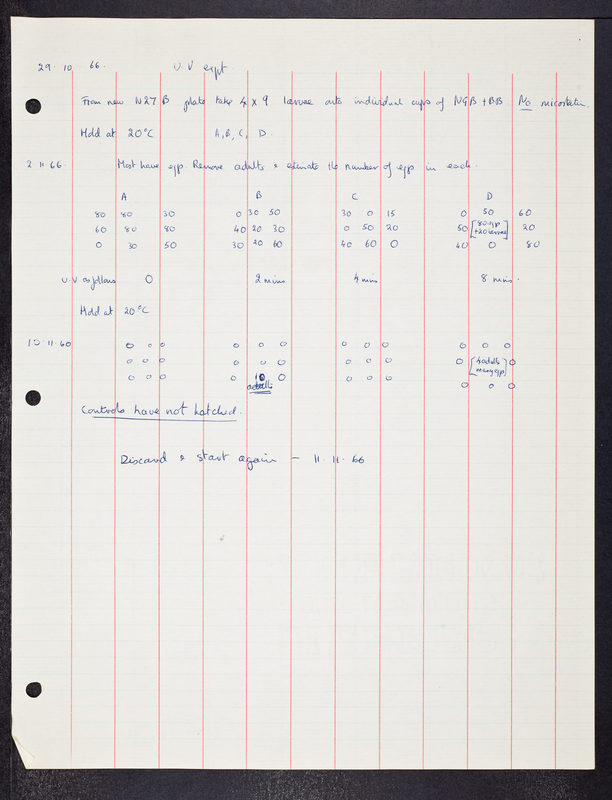 29. 10 66. U.V expt.
From new N27 B plate take 4 x 9 larvae onto individual cups of NGB + BB. No nicostatin.
Hold at 20°C A, B, C, D.
2 11 66. Most have eggs. Remove adults & estimate the number of eggs in each.
A B C D
80 80 30 0 30 50 30 0 15 0 50 60
60 80 80 40 20 30 0 50 20 50 [80 eggs + 20 larvae] 20
0 30 50 30 20 60 40 60 0 40 0 80
U.V as follows 0 2 mins 4 mins 8 mins.
Hold at 20°C
10. 11. 60 0 0 0 0 0 0 0 0 0 0 0 0
0 0 0 0 0 0 0 0 0 0 [4 adults many eggs] 0
0 0 0 0 10 0 0 0 0 0 0 0
adults
Controls have not hatched.
Discard & start again – 11. 11. 66